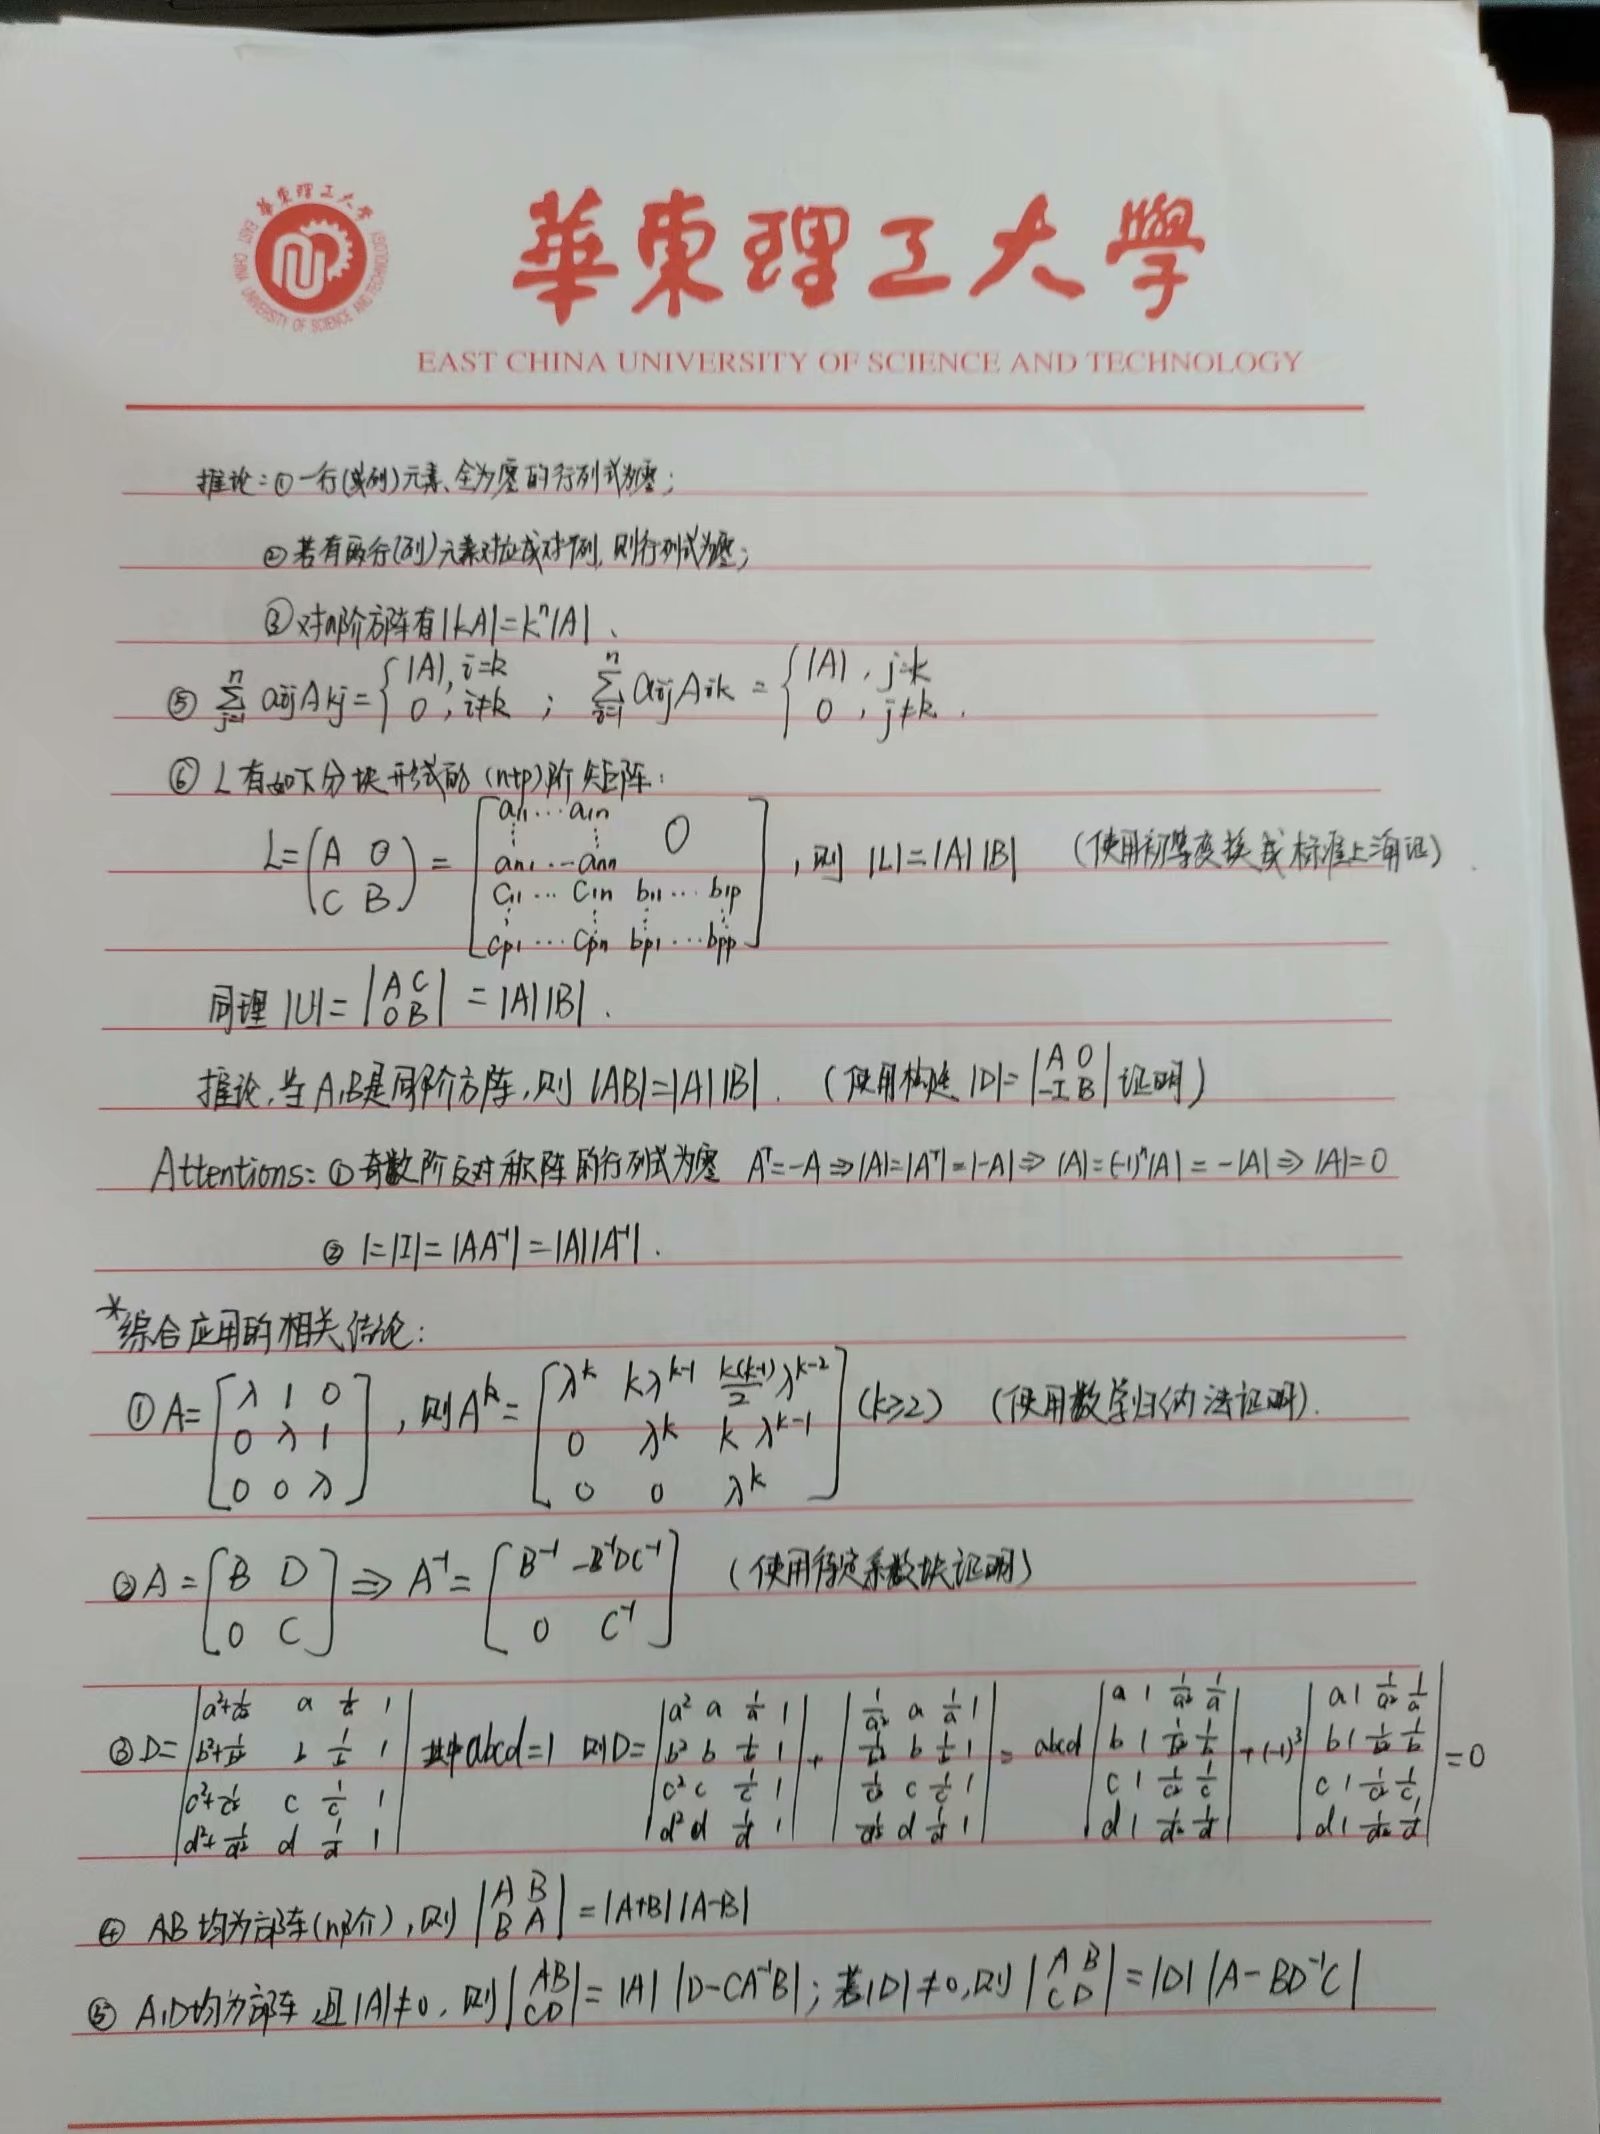 華東理工大學
EAST CHINA UNIVERSITY OF SCIENCE AND TECHNOLOGY
華東理工大學
EAST CHINA UNIVERSITY OF SCIENCE AND TECHNOLOGY
推论:①一行(或列)元素全为零的行列式为零;
②若有两行(列)元素对应成对比例,则行列式为零;
③对n阶方阵有|kA|=kⁿ|A|、
⑤ ∑_{j=1}^{n} aij Akj = { |A|, i=k ; 0, i≠k ; ∑_{i=1}^{n} aij Aik = { |A|, j=k ; 0, j≠k .
⑥ L有如下分块形式的(n+p)阶矩阵:
L = (A 0; C B) = [a11 … a1n 0; ⋮ ⋮; an1 … ann; c11 … c1n b11 … b1p; ⋮ ⋮ ⋮ ⋮; cp1 … cpn bp1 … bpp], 则 |L|=|A||B| (使用初等变换或标准上三角证)
同理 |U| = |A C; 0 B| = |A||B| .
推论,当A,B是同阶方阵,则 |AB|=|A||B|. (使用构造 |D|=|A 0; -I B| 证明)
Attentions: ①奇数阶反对称阵的行列式为零 Aᵀ=-A⇒|A|=|Aᵀ|=|-A|⇒|A|=(-1)ⁿ|A|=-|A|⇒|A|=0
② 1=|I|=|AA⁻¹|=|A||A⁻¹| .
*综合应用的相关结论:
① A=[λ 1 0; 0 λ 1; 0 0 λ], 则 Aᵏ=[λᵏ kλᵏ⁻¹ k(k-1)/2 λᵏ⁻²; 0 λᵏ kλᵏ⁻¹; 0 0 λᵏ] (k≥2) (使用数学归纳法证明).
② A=[B D; 0 C] ⇒ A⁻¹=[B⁻¹ -B⁻¹DC⁻¹; 0 C⁻¹] (使用待定系数块证明)
③ D=|a²+1/a² a 1/a 1; b²+1/b² b 1/b 1; c²+1/c² c 1/c 1; d²+1/d² d 1/d 1| 其中abcd=1 则D=|a² a 1/a 1; b² b 1/b 1; c² c 1/c 1; d² d 1/d 1| + |1/a² a 1/a 1; 1/b² b 1/b 1; 1/c² c 1/c 1; 1/d² d 1/d 1| = abcd|a 1 1/a² 1/a; b 1 1/b² 1/b; c 1 1/c² 1/c; d 1 1/d² 1/d| + (-1)³|a 1 1/a² 1/a; b 1 1/b² 1/b; c 1 1/c² 1/c; d 1 1/d² 1/d| = 0
④ AB均为方阵(n阶),则 |A B; B A| = |A+B||A-B|
⑤ A,D均为方阵,且|A|≠0, 则|A B; C D| = |A| |D-CA⁻¹B|; 若|D|≠0,则|A B; C D| = |D| |A-BD⁻¹C|